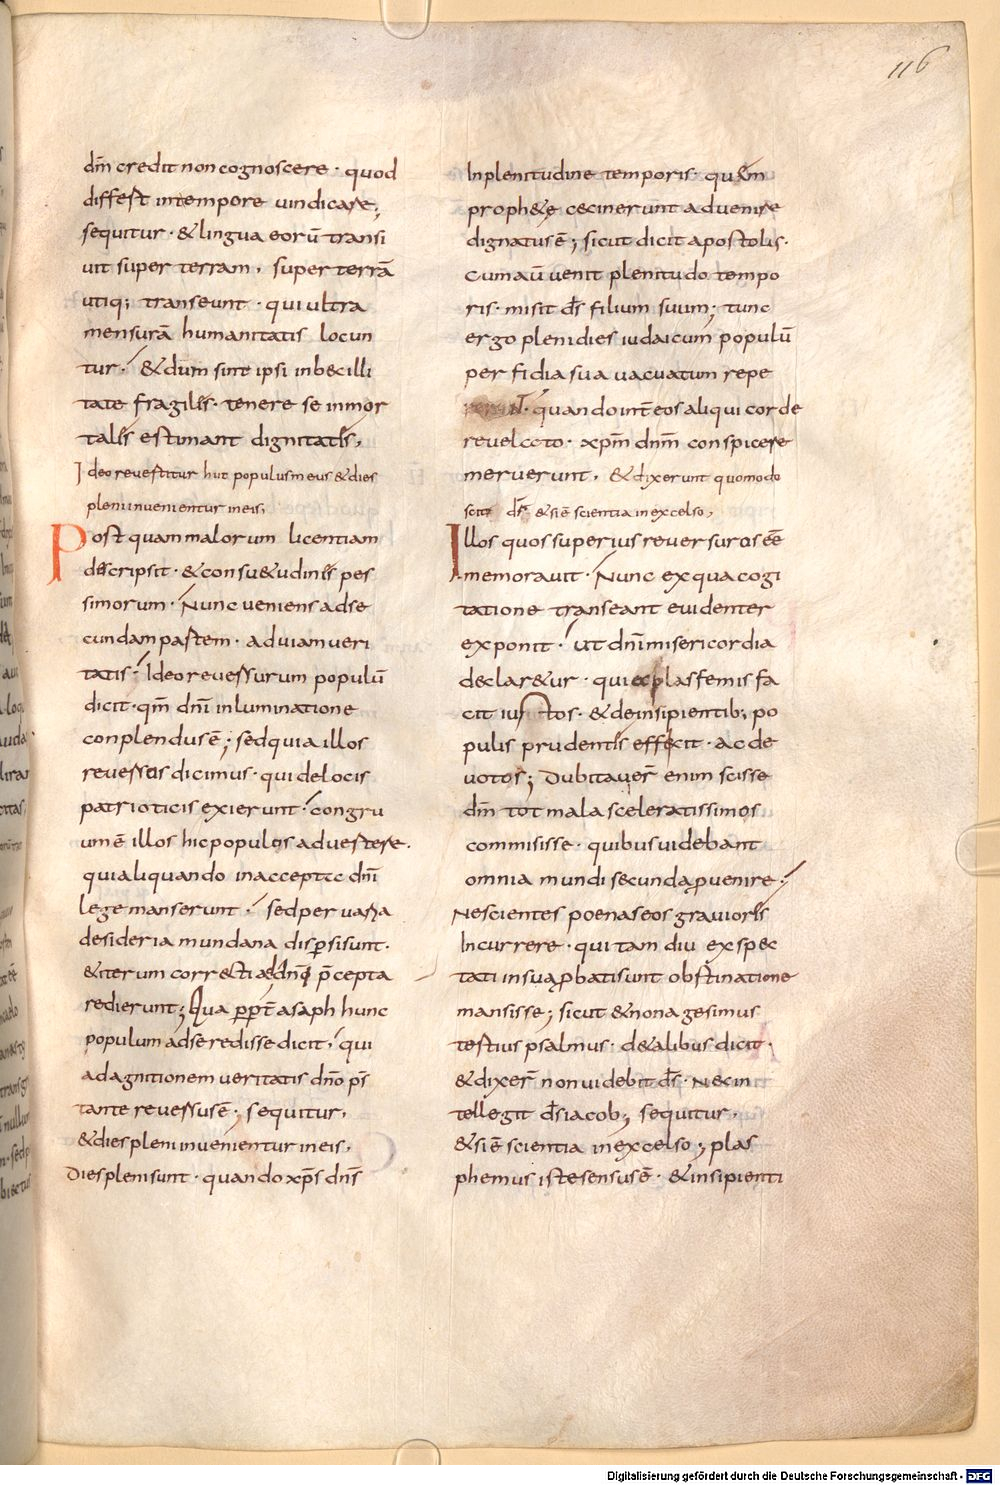 116
dm̄ credit non cognoscere · quod
differt in tempore uindicare;
sequitur · & lingua eorū transi
uit super terram, super terrā
utiq; transeunt · qui ultra
mensurā humanitatis locun
tur · & dum sint ipsi inbecilli
tate fragiles · tenere se inmor
tales estimant dignitates,
Ideo reuertitur huc populus meus & dies
pleni inuenientur in eis;
Post quam malorum licentiam
descripsit · & consu&udines pes
simorum · Nunc ueniens ad se
cundam partem · ad uiam ueri
tatis · Ideo reuersurum populū
dicit · qm̄ dn̄i inluminatione
conplendus ē; sed quia illos
reuersos dicimus · qui de locis
patrioticis exierunt · congru
um ē illos hic populos aduertere ·
qui aliquando in accepta dn̄i
lege manserunt · sed per uaria
desideria mundana dispersi sunt ·
& iterum correcti ad dn̄i p̄cepta
redierunt; Qua ppt̄ asaph hunc
populum ad se redisse dicit, qui
ad agnitionem ueritatis dn̄o p̄s
tante reuersus ē; sequitur,
& dies pleni inuenientur in eis,
Dies pleni sunt · quando xp̄s dn̄s
In plenitudine temporis · quem
proph&ę cecinerunt aduenire
dignatus ē; sicut dicit apostolus ·
Cum aū uenit plenitudo tempo
ris · misit ds̄ filium suum; tunc
ergo pleni dies iudaicum populū
perfidia sua uacuatum repe
quando int̄ eos aliqui corde
reuelato · xp̄m dn̄m conspicere
meruerunt, & dixerunt quomodo
scito ds̄ & si ē scientia in excelso,
Illos quos superius reuersuros eē
memorauit · Nunc ex qua cogi
tatione transeant euidenter
exponit · ut dn̄i misericordia
declar&ur · qui ex plasfemis fa
cit iustos · & de insipientib; po
pulis prudentes effecit · ac de
uotos; Dubitauer̄ enim scisse
dm̄ tot mala sceleratissimos
commisisse · quibus uidebant
omnia mundi secunda puenire ·
Nescientes poenas eos grauiores
Incurrere · qui tam diu exspec
tati in sua pbati sunt obstinatione
mansisse; sicut & nonagesimus
tertius psalmus · de talibus dicit ·
& dixer̄ non uidebit ds̄ · Nec in
tellegit ds̄ iacob; sequitur,
& si ē scientia in excelso; plas
phemus iste sensus ē · & insipienti
Digitalisierung gefördert durch die Deutsche Forschungsgemeinschaft - DFG